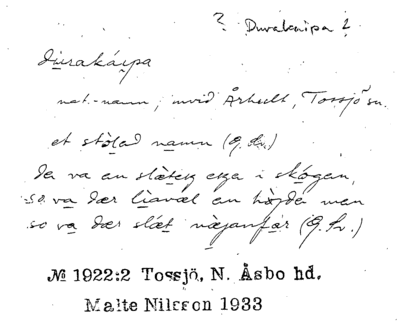 ? Duvakaipa 2
duvakáipa
nat.-namn, invid Århult, Tossjö sn.
et stòlad namn (g. kv.)
de va en slæteg ega i skógen,
so va dær lìaväl en höjde men
so va dær slæt næjanfár (g. kv.)
№ 1922:2 Tossjö, N. Åsbo hd.
Malte Nilsson 1933